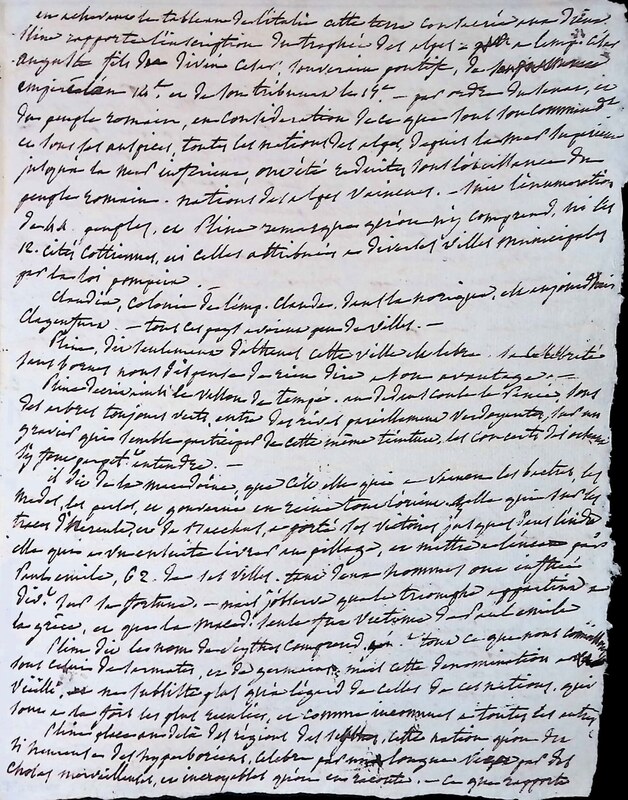 en achevant le tableau de l'italie cette terre consacrée aux Dieux
Pline rapporte l'inscription du trophée des alpes a l'emp. César
auguste fils du divin César souverain pontife, de
empereur 14e et de son tribunat le 17e — par ordre du senat, et
du peuple romain, en considération de ce que sous son commandt
et sous ses auspices, toutes les nations des alpes, depuis la mer supérieure
jusqu'à la mer inférieure, ont été réduites sous l'obéissance du
peuple romain. nations des alpes vaincues. — suit l'énumération
de 44 peuples, et Pline remarque qu'on n'y comprend, ni les
12. cités Cottiennes, ni celles attribuées a diverses villes municipales
par la loi pompeia.
Claudia, Colonie de l'emp. Claude, dans la norique, est aujourd'hui
Clagenfurt. — tous ces pays avoient peu de villes. —
Pline, dit seulement d'athenes cette ville celebre. sa célébrité
sans bornes nous dispense de rien dire a son avantage. —
Pline décrit ainsi le vallon de tempé. au dedans coule le Penée, sous
des arbres toujours verts, entre des rives pareillement verdoyantes, sur un
gravier qui semble participer de cette même teinture, les concerts des oiseaux
s'y font entendre. —
il dit de la macedoine, que c'est elle qui a vaincu les bactres, les
medes, les perses, et gouverné en reine tout l'orient. celle qui sur les
traces d'hercule, et de Bacchus, a porté ses victoires jusques dans l'inde
elle qui a vu ensuite livrer au pillage, et mettre a l'encan par
Paul emile, 62. de ses villes. tant deux hommes ont
difft sur sa fortune. — mais j'observe que le triomphe appartint a
la grèce, et que la maced. seule fut victime de Paul emile
Pline dit le nom de scythes comprend, tout ce que nous connoissons
sous celui de sarmates, et de germains, mais cette denomination a
vieilli, et ne subsiste plus qu'a l'égard de celles de ces nations, qui
sont a la fois les plus reculées, et comme inconnues a toutes les autres
Pline place au dela des regions des, cette nation qu'on dit
si heureuse des hyperboréens, célèbre par une longue vie par des
choses merveilleuses, et incroyables qu'on en raconte. — Ce que rapporte